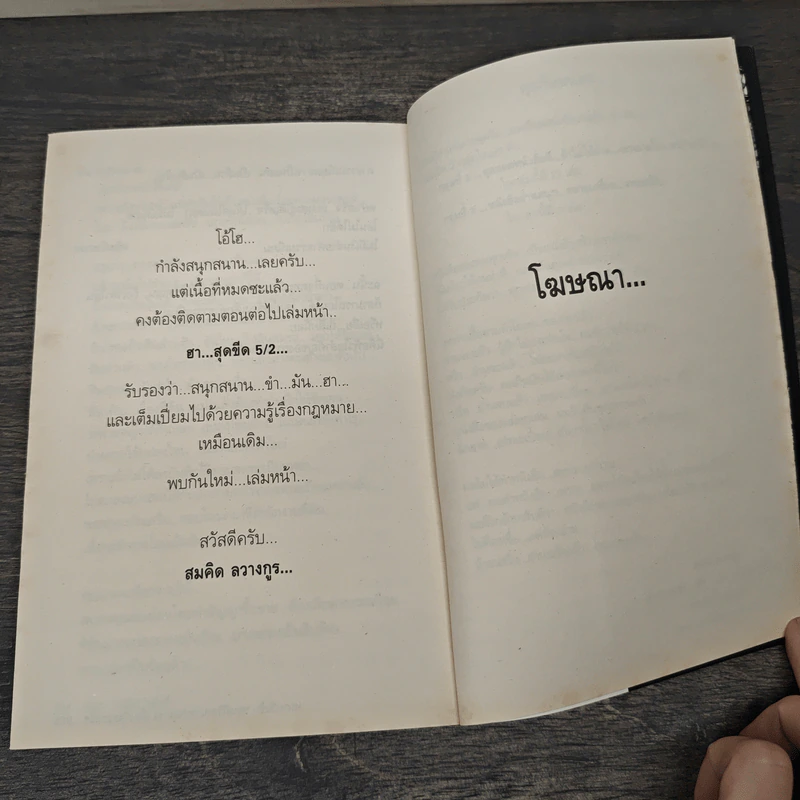 โอ้โฮ...
กำลังสนุกสนาน...เลยครับ...
แต่เนื้อที่หมดซะแล้ว...
คงต้องติดตามตอนต่อไปเล่มหน้า..
ฮา...สุดขีด 5/2...
รับรองว่า...สนุกสนาน...ขำ...มัน...ฮา...
และเต็มเปี่ยมไปด้วยความรู้เรื่องกฎหมาย...
เหมือนเดิม...
พบกันใหม่...เล่มหน้า...
สวัสดีครับ...
สมคิด ลวางกูร...
โฆษณา...